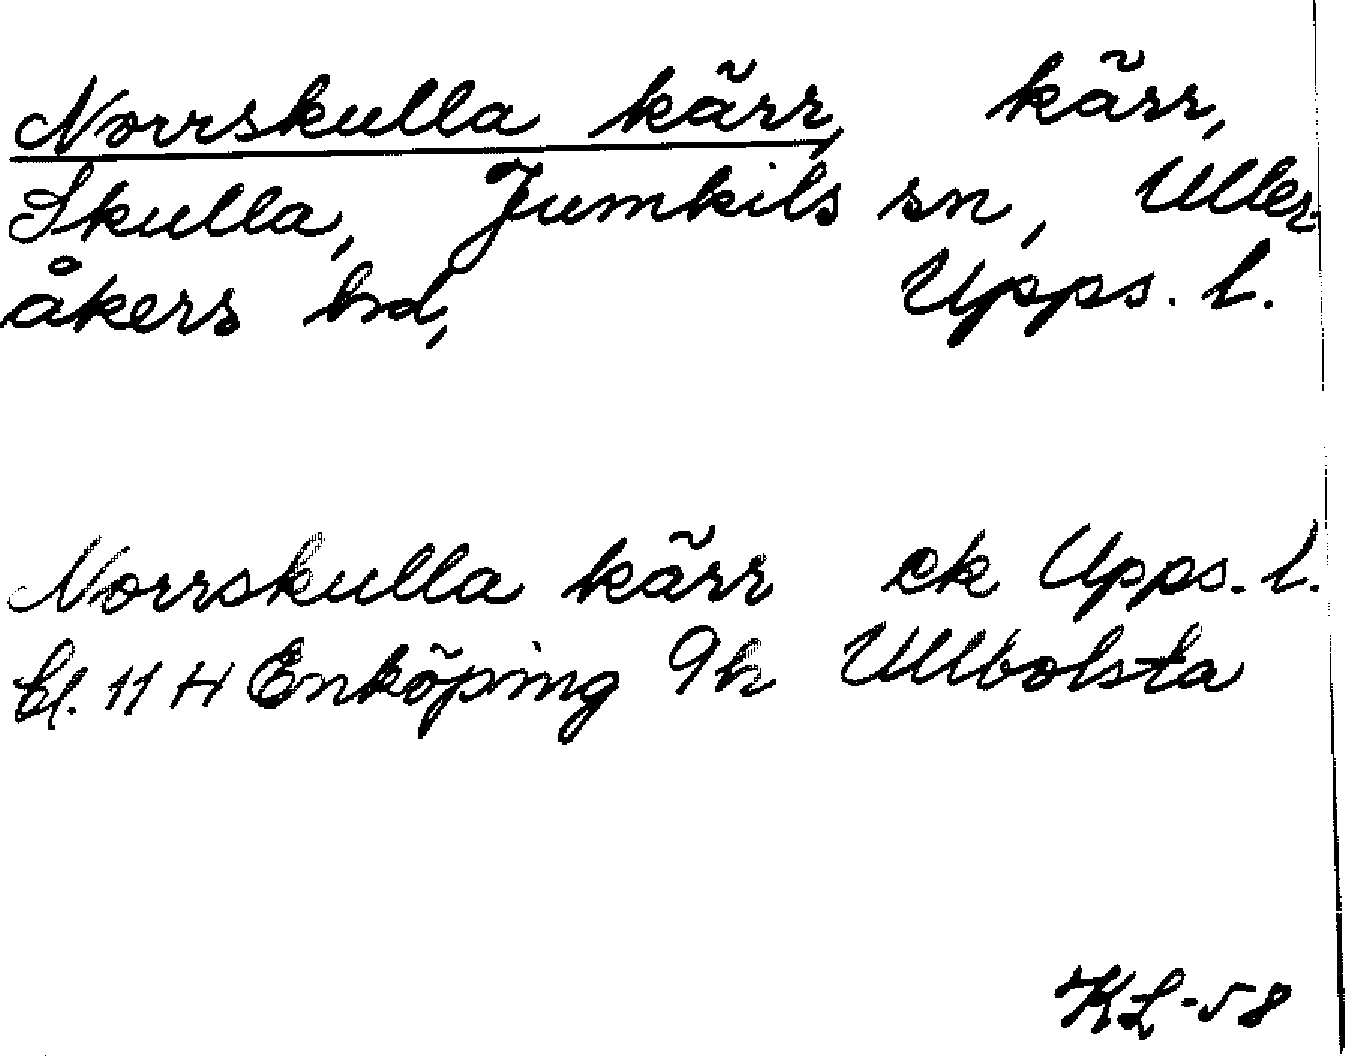 Norrskulla kärr, kärr,
Skulla, Jumkils sn, Uller-
åkers hd, Upps. l.
Norrskulla kärr ek Upps. l.
bl. 11 H Enköping 9h Ullbolsta
KL-58